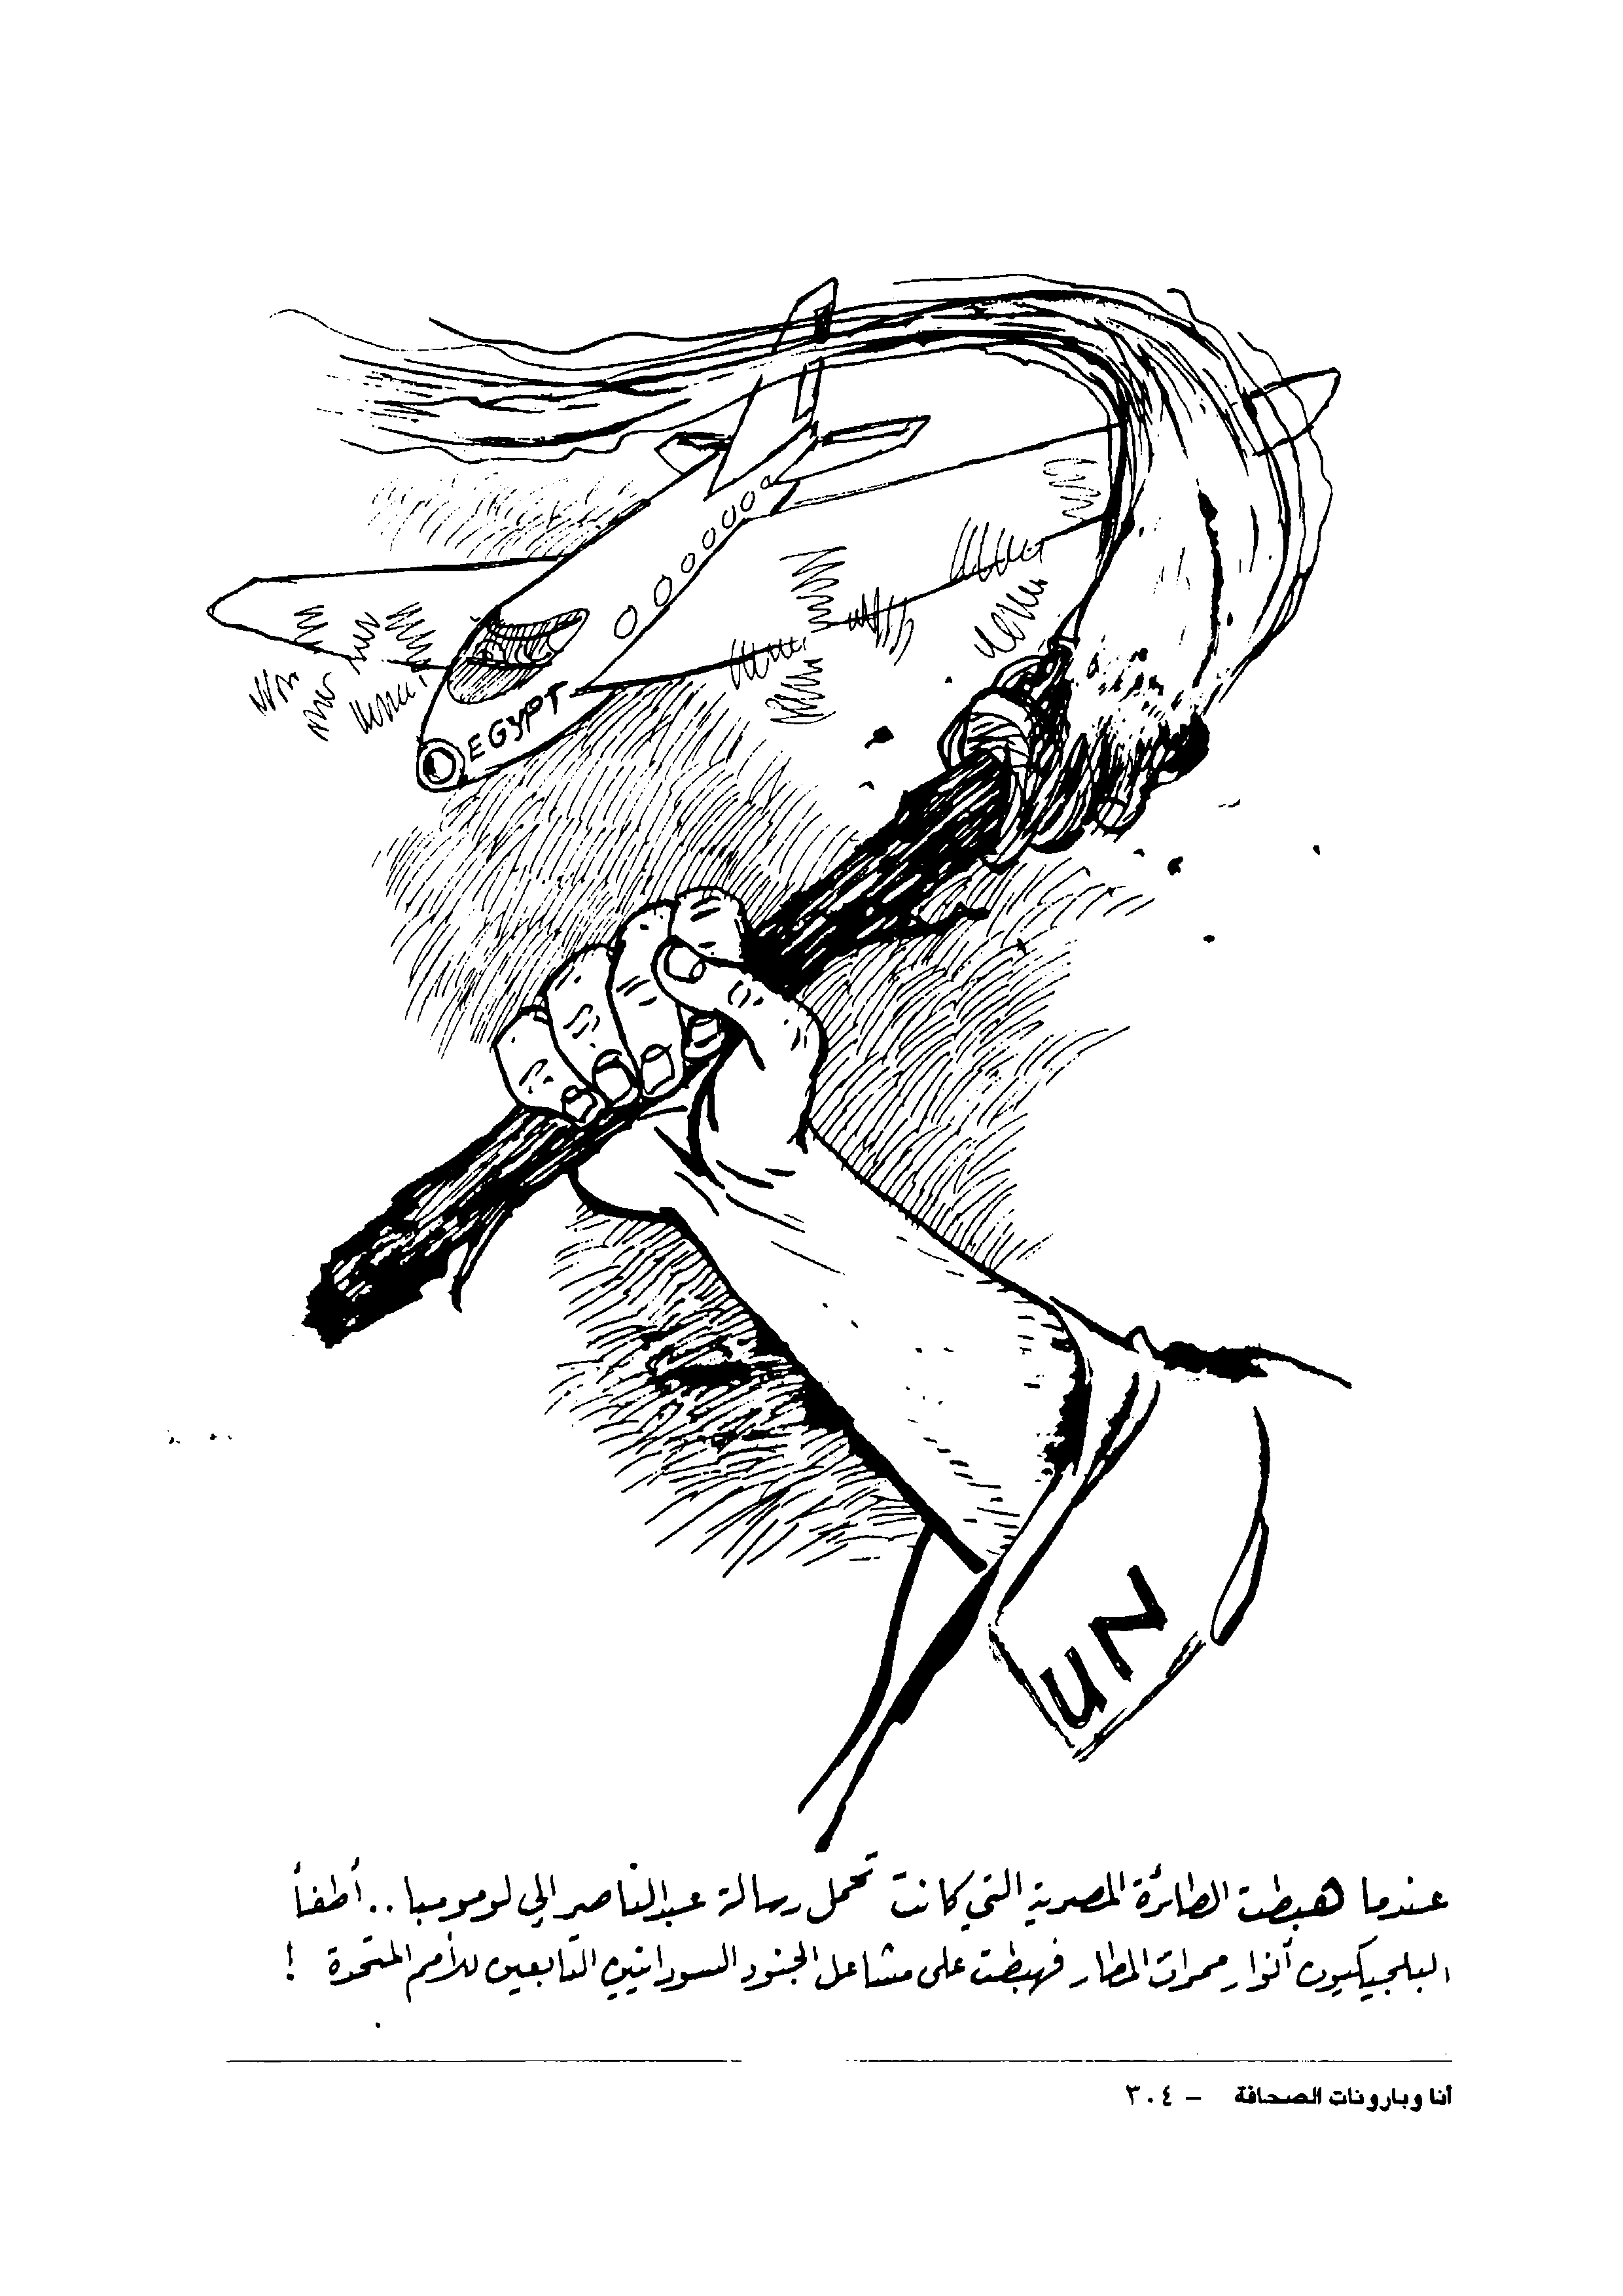 EGYPT
UN
عندما هبطت الطائرة المصرية التي كانت تحمل رسالة عبدالناصر الي لومومبا .. أطفأ
البلجيكيون أنوار ممرات المطار فهبطت على مشاعل الجنود السودانيين التابعين للأمم المتحدة !
أنا وبارونات الصحافة – ٣٠٤